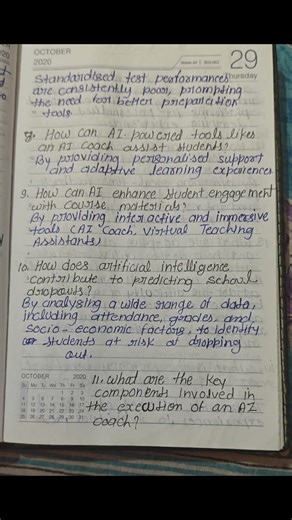 OCTOBER
2020
29
Thursday
Standardised test performances
are consistently poor, prompting
the need for better preparation
tools
8. How can AI powered tools likes
an AI coach assist students?
By providing personalised support
and adaptive learning experiences
9. How can AI enhance student engagement
with course materials?
By providing interactive and immersive
tools (AI Coach, Virtual Teaching
Assistants)
10. How does artificial intelligence
contribute to predicting school
dropouts?
By analysing a wide range of data,
including attendance, grades, and
socio-economic factors, to identify
students at risk of dropping
out.
OCTOBER 2020
Su Mo Tu We Th Fr Sa
1 2 3
4 5 6 7 8 9 10
11 12 13 14 15 16 17
18 19 20 21 22 23 24
25 26 27 28 29 30 31
11. What are the key
components involved in
the execution of an AI
coach?